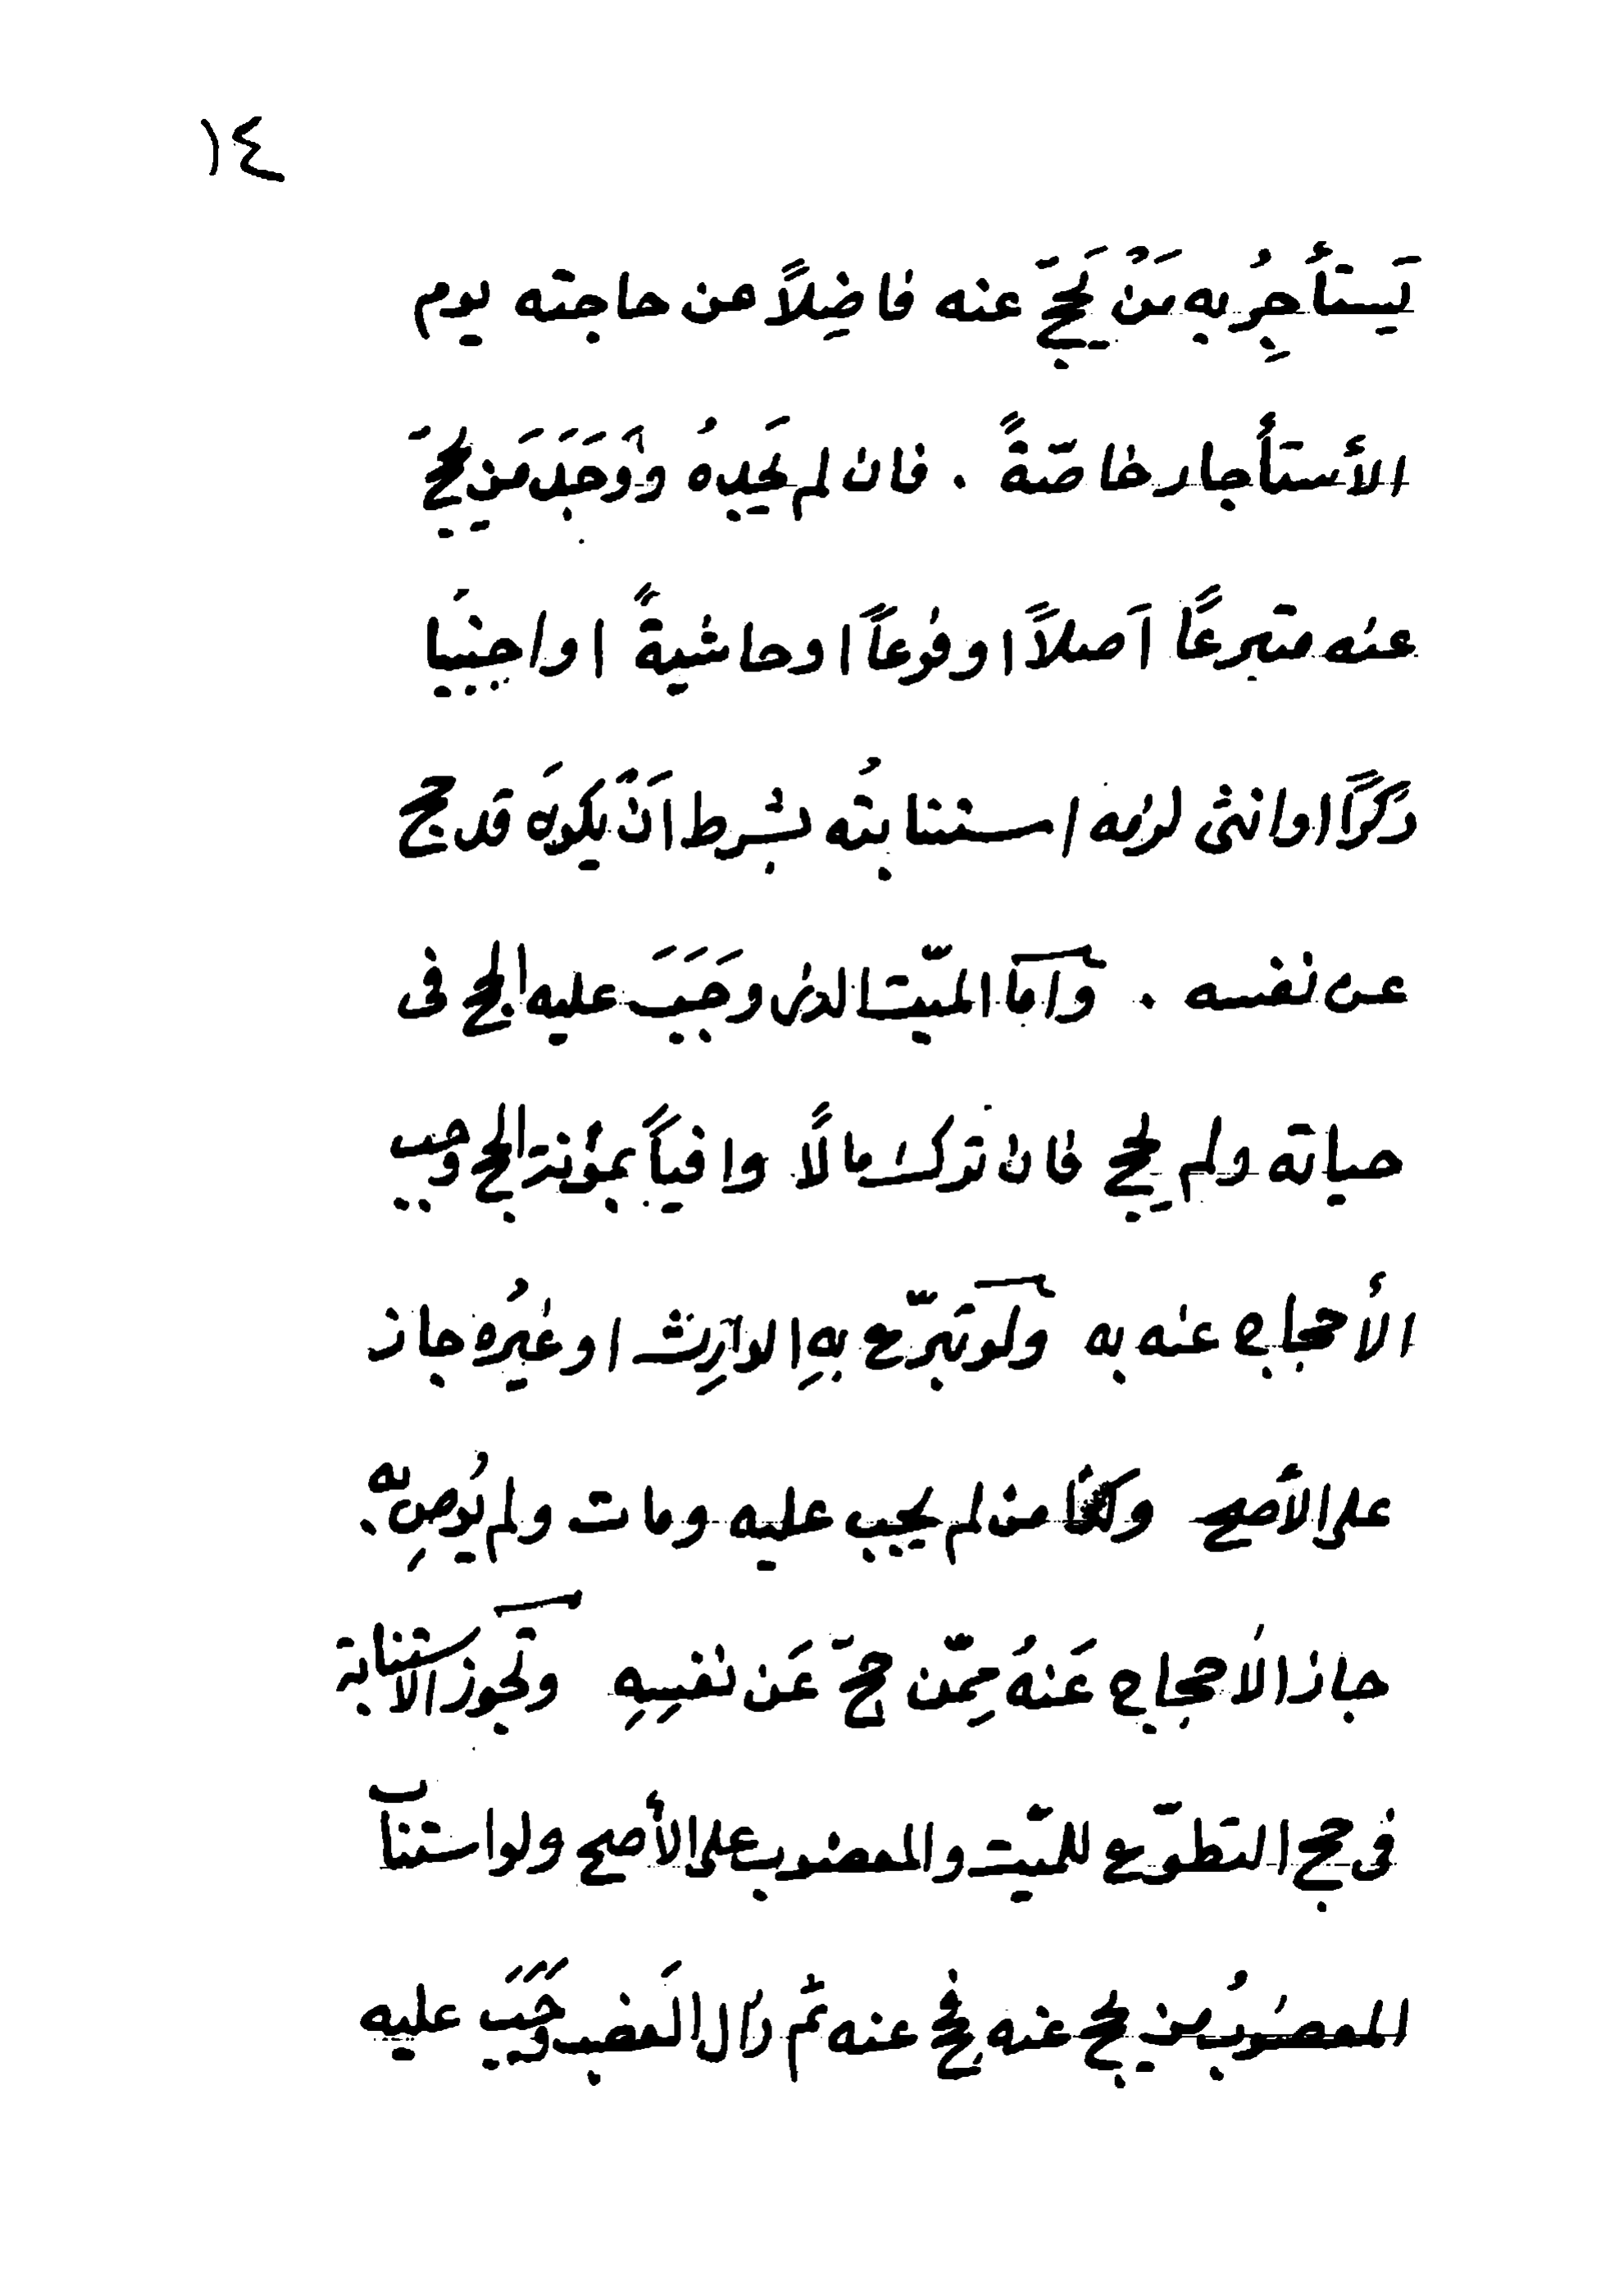 ١٤
يَستأجِرُ به مَنْ يَحجّ عنه فاضِلاً عن حاجته يوم
الأستأجار خاصّةً . فان لم يَجِدهُ وَوَجَدَ مَن يحجّ
عنه متبرعًا اَصلاً اوفرعاً اوحاشيةً اواجنبيا
ذكرًا اوانثى لزمه استنابتُه بشرط اَنْ يكونَ قد حج
عن نفسه . واَمّا الميّت الذى وَجَبَ عليه الحج فى
حياته ولم يحج فان ترك مالاً وافياً بمؤنة الحج وجب
الأحجاج عنه به ولو تبرّع بهِ الوارِث اوغيرُه جاز
على الأصح وكذا من لم يجب عليه ومات ولم يُوصِ به
جاز الاحجاج عَنهُ مِمّن حجّ عَن نفسِهِ وتَجوز الاستنابة
فى حج التطوّع للميّت والمعضوب على الأصح ولواستناب
المعضوبُ من يحج عنه فحج عنه ثم زال العَضب وَجَبَ عليه